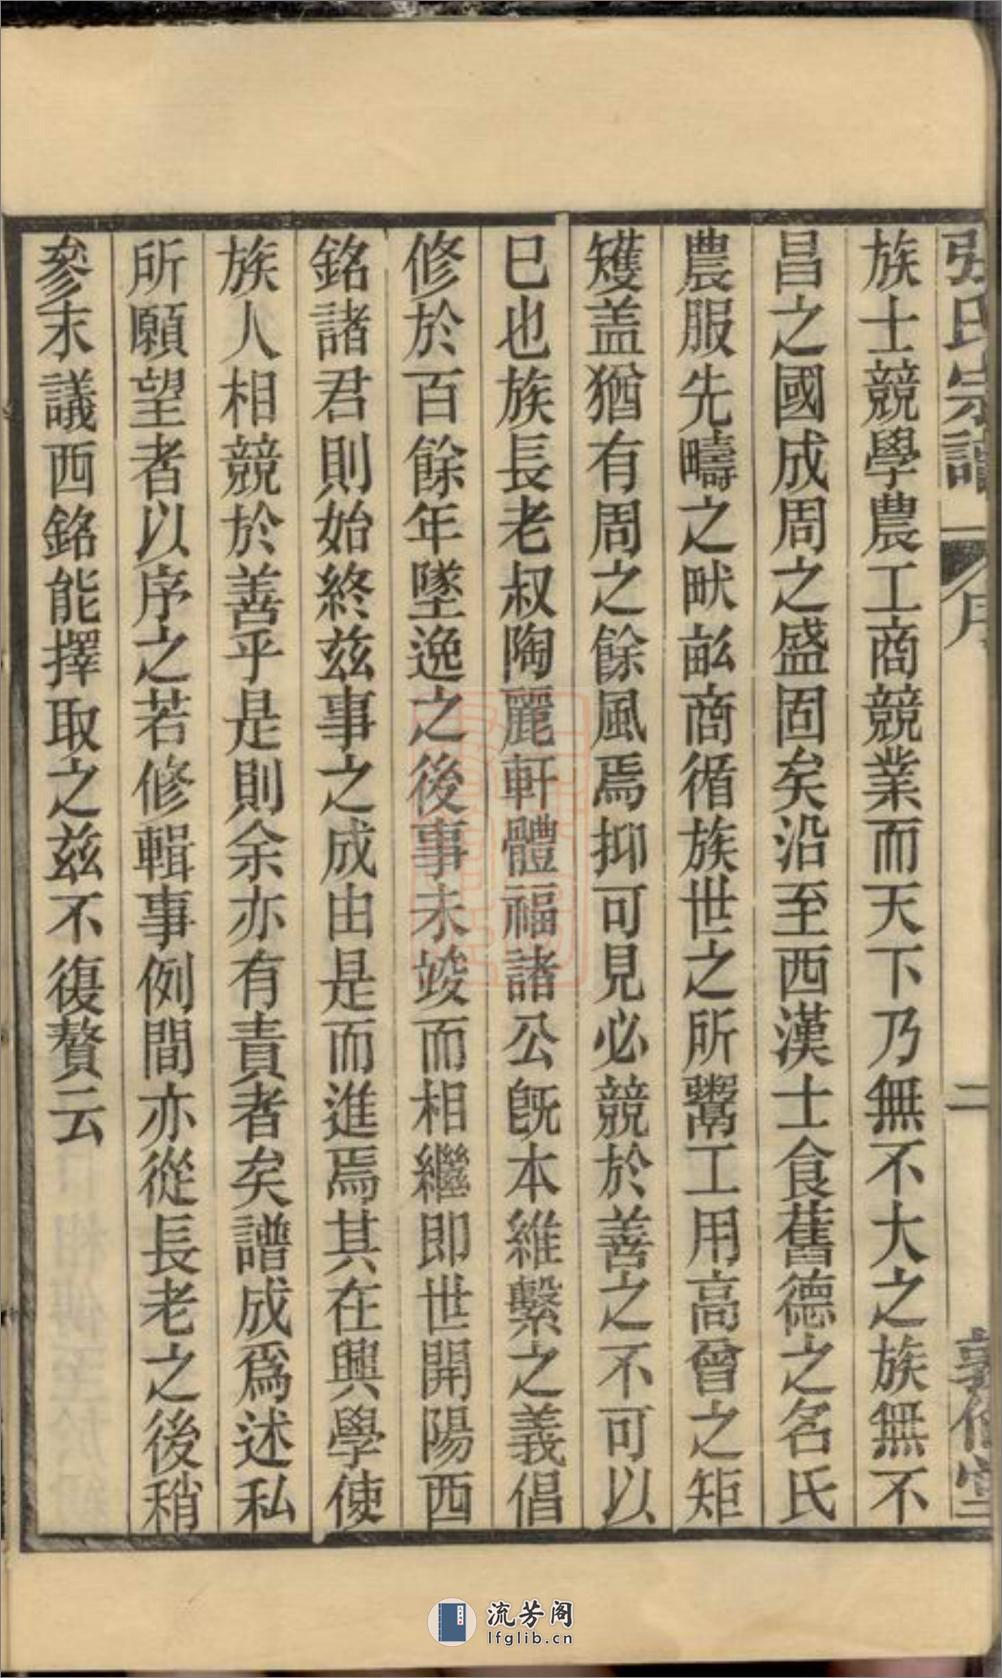 張氏宗譜 序 二 敦倫堂
族士競學農工商競業而天下乃無不大之族無不
昌之國成周之盛固矣沿至西漢士食舊德之名氏
農服先疇之畎畝商循族世之所鬻工用高曾之矩
矱盖猶有周之餘風焉抑可見必競於善之不可以
巳也族長老叔陶麗軒體福諸公旣本維繫之義倡
修於百餘年墜逸之後事未竣而相繼即世開陽西
銘諸君則始終兹事之成由是而進焉其在興學使
族人相競於善乎是則余亦有責者矣譜成爲述私
所願望者以序之若修輯事例間亦從長老之後稍
參末議西銘能擇取之兹不復贅云
流芳阁
lfglib.cn